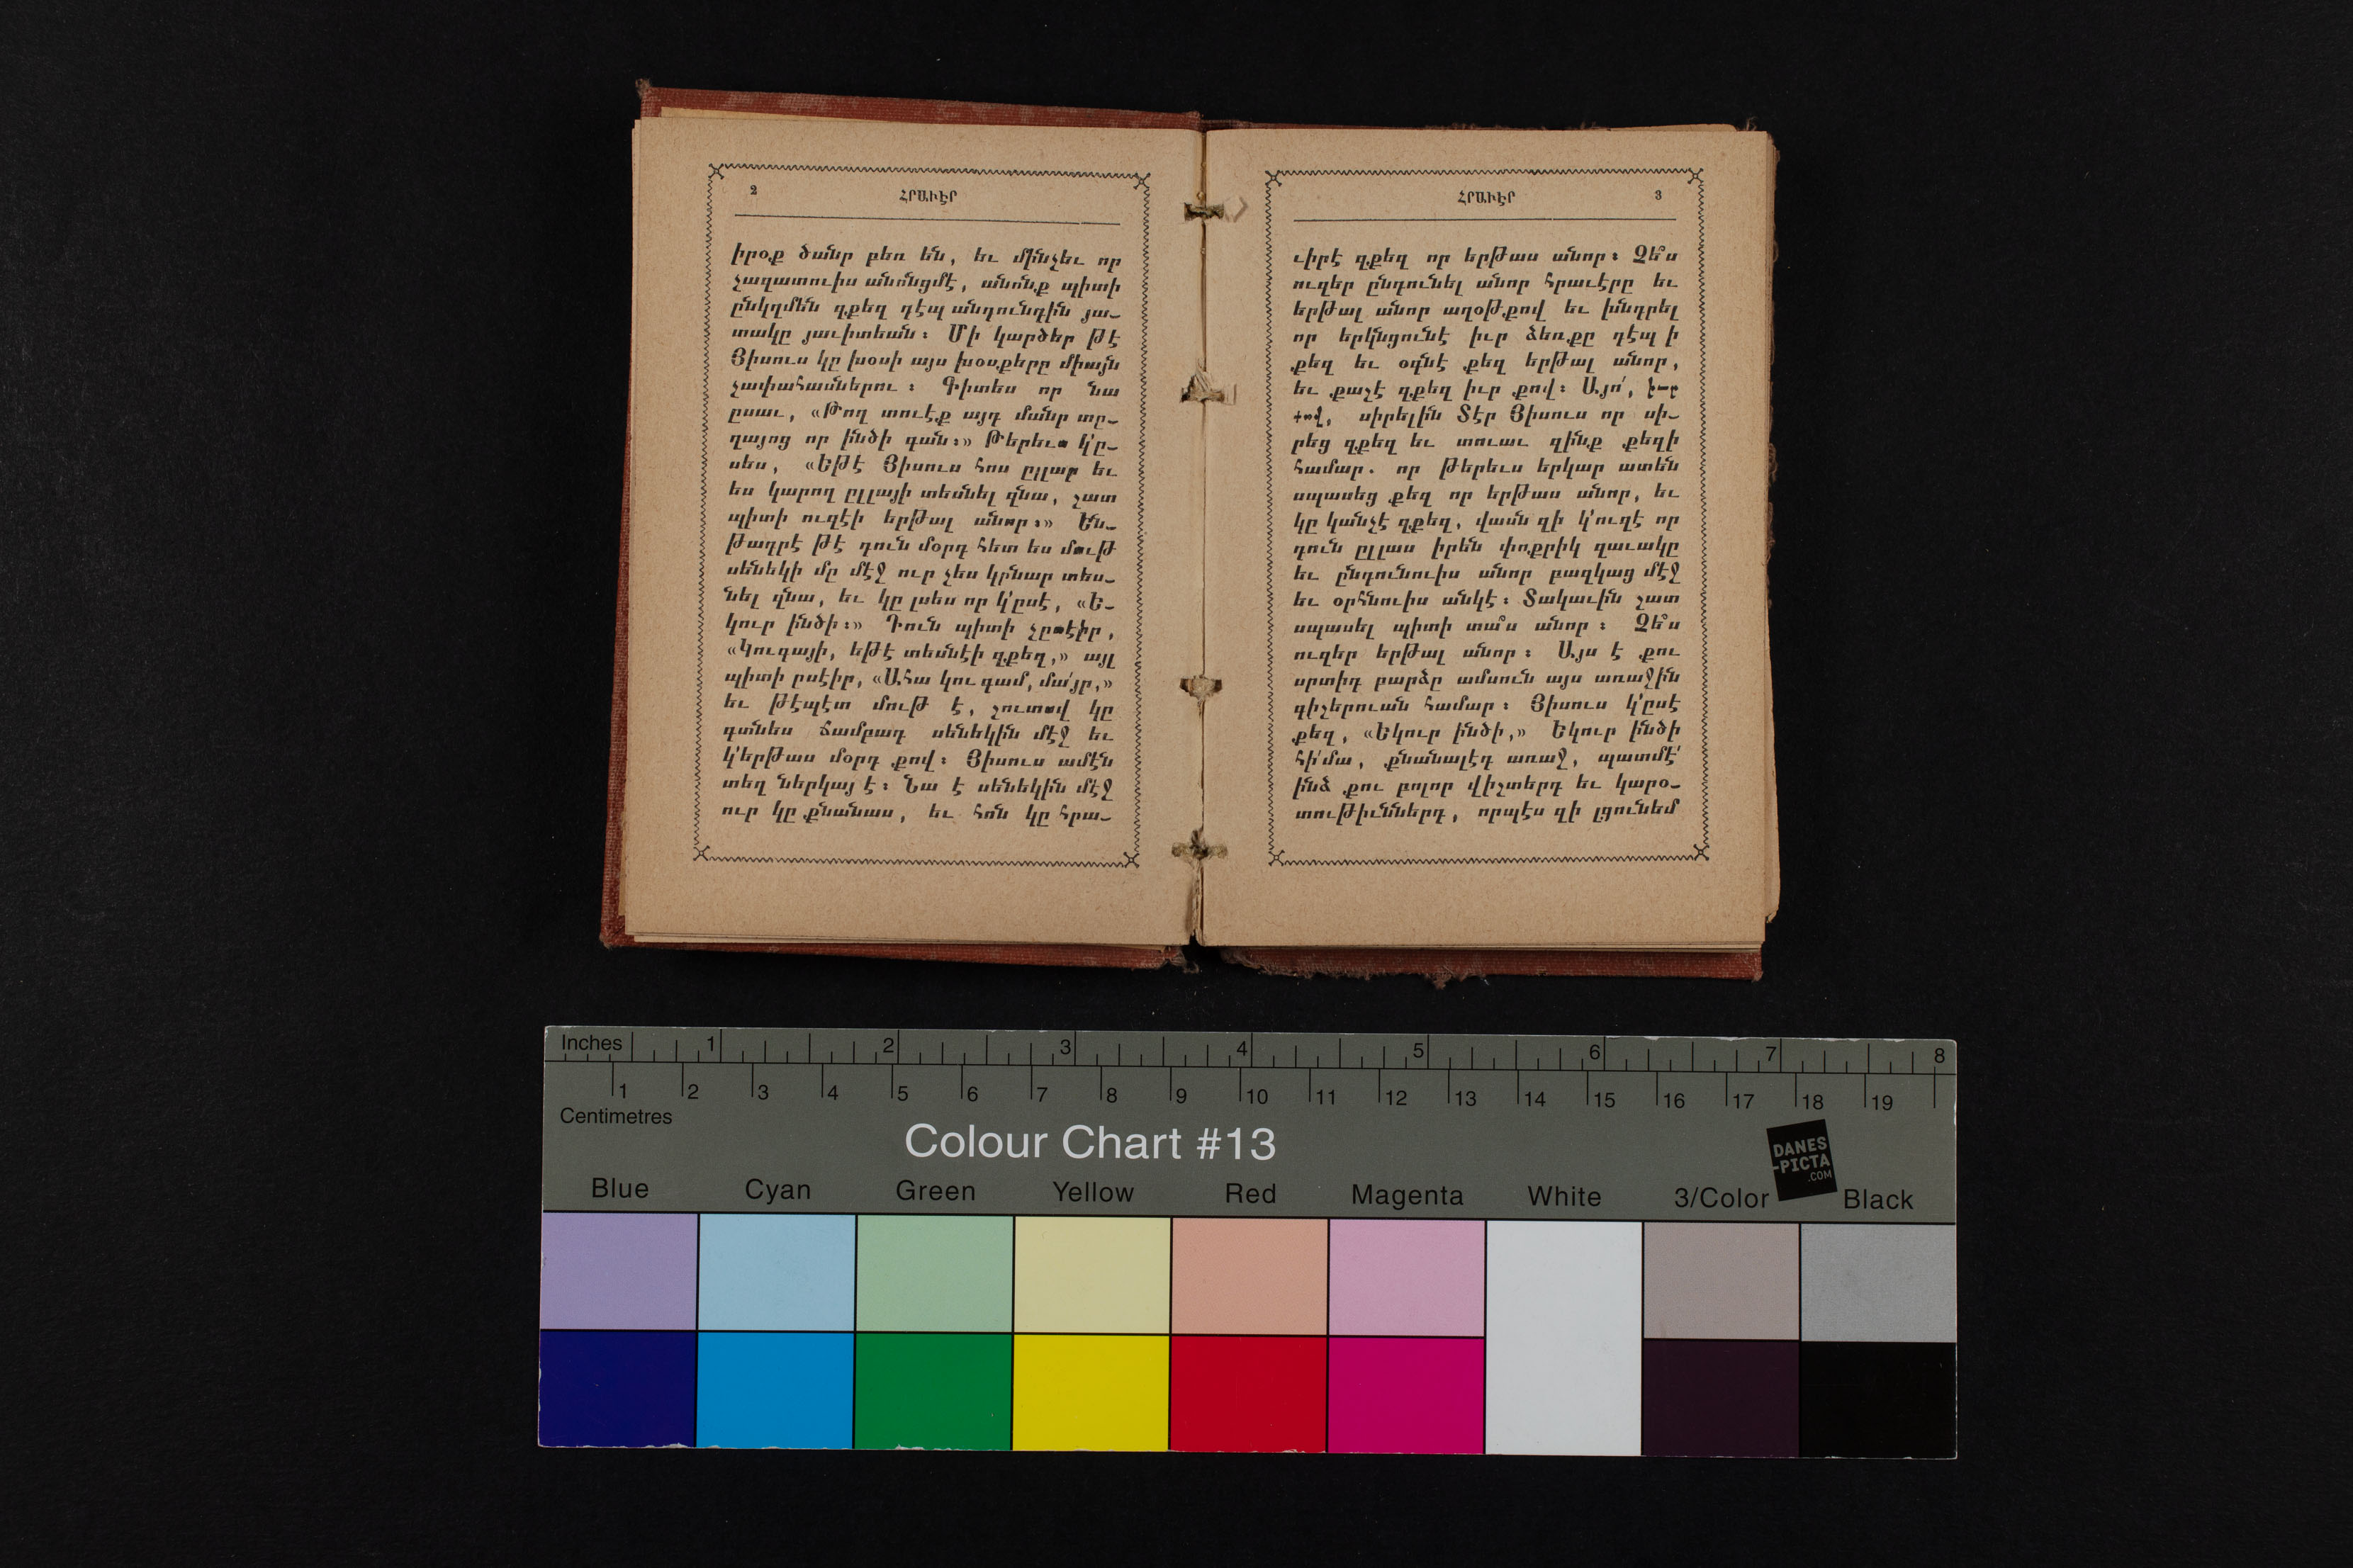 2 ՀՐԱՒԷՐ
իրօք ծանր բեռ են, եւ մինչեւ որ
չազատուիս անոնցմէ, անոնք պիտի
ընկղմեն զքեզ դէպ անդունդին յա-
տակը յաւիտեան։ Մի կարծեր թէ
Յիսուս կը խօսի այս խօսքերը միայն
չափահասներու։ Գիտես որ նա
ըսաւ, «Թող տուէք այդ մանր տը-
ղայոց որ ինծի գան։» Թերեւս կ'ը-
սես, «Եթէ Յիսուս հոս ըլլար եւ
ես կարող ըլլայի տեսնել զնա, շատ
պիտի ուզէի երթալ անոր։» Են-
թադրէ թէ դուն մօրդ հետ ես մութ
սենեկի մը մէջ ուր չես կրնար տես-
նել զնա, եւ կը լսես որ կ'ըսէ, «Ե-
կուր ինծի։» Դուն պիտի չըսէիր,
«Կուգայի, եթէ տեսնէի զքեզ,» այլ
պիտի ըսէիր, «Ահա կու գամ, մա՛յր,»
եւ թէպէտ մութ է, շուտով կը
գտնես ճամբադ սենեկին մէջ եւ
կ'երթաս մօրդ քով։ Յիսուս ամէն
տեղ ներկայ է։ Նա է սենեկին մէջ
ուր կը քնանաս, եւ հոն կը հրա-
ՀՐԱՒԷՐ 3
ւիրէ զքեզ որ երթաս անոր։ Չե՞ս
ուզեր ընդունել անոր հրաւէրը եւ
երթալ անոր աղօթքով եւ խնդրել
որ երկնցունէ իւր ձեռքը դէպ ի
քեզ եւ օգնէ քեզ երթալ անոր,
եւ քաշէ զքեզ իւր քով։ Այո՛, իւր
քով, սիրելին Տէր Յիսուս որ սի-
րեց զքեզ եւ տուաւ զինք քեզի
համար. որ թերեւս երկար ատեն
սպասեց քեզ որ երթաս անոր, եւ
կը կանչէ զքեզ, վասն զի կ'ուզէ որ
դուն ըլլաս իրեն փոքրիկ զաւակը
եւ ընդունուիս անոր բազկաց մէջ
եւ օրհնուիս անկէ։ Տակաւին շատ
սպասել պիտի տա՞ս անոր։ Չե՞ս
ուզեր երթալ անոր։ Այս է քու
սրտիդ բարձը ամսուն այս առաջին
գիշերուան համար։ Յիսուս կ'ըսէ
քեզ, «Եկուր ինծի,» Եկուր ինծի
հի՛մա, քնանալէդ առաջ, պատմէ՛
ինձ քու բոլոր վիշտերդ եւ կարօ-
տութիւններդ, որպէս զի լցունեմ
Inches 1 2 3 4 5 6 7 8
1 2 3 4 5 6 7 8 9 10 11 12 13 14 15 16 17 18 19
Centimetres
Colour Chart #13
DANES
-PICTA
.COM
Blue Cyan Green Yellow Red Magenta White 3/Color Black